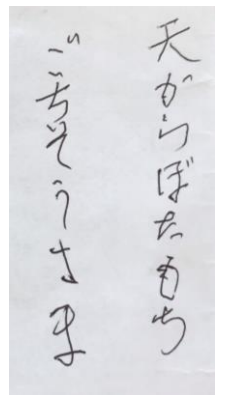 天からぼたもち
ごちそうさま